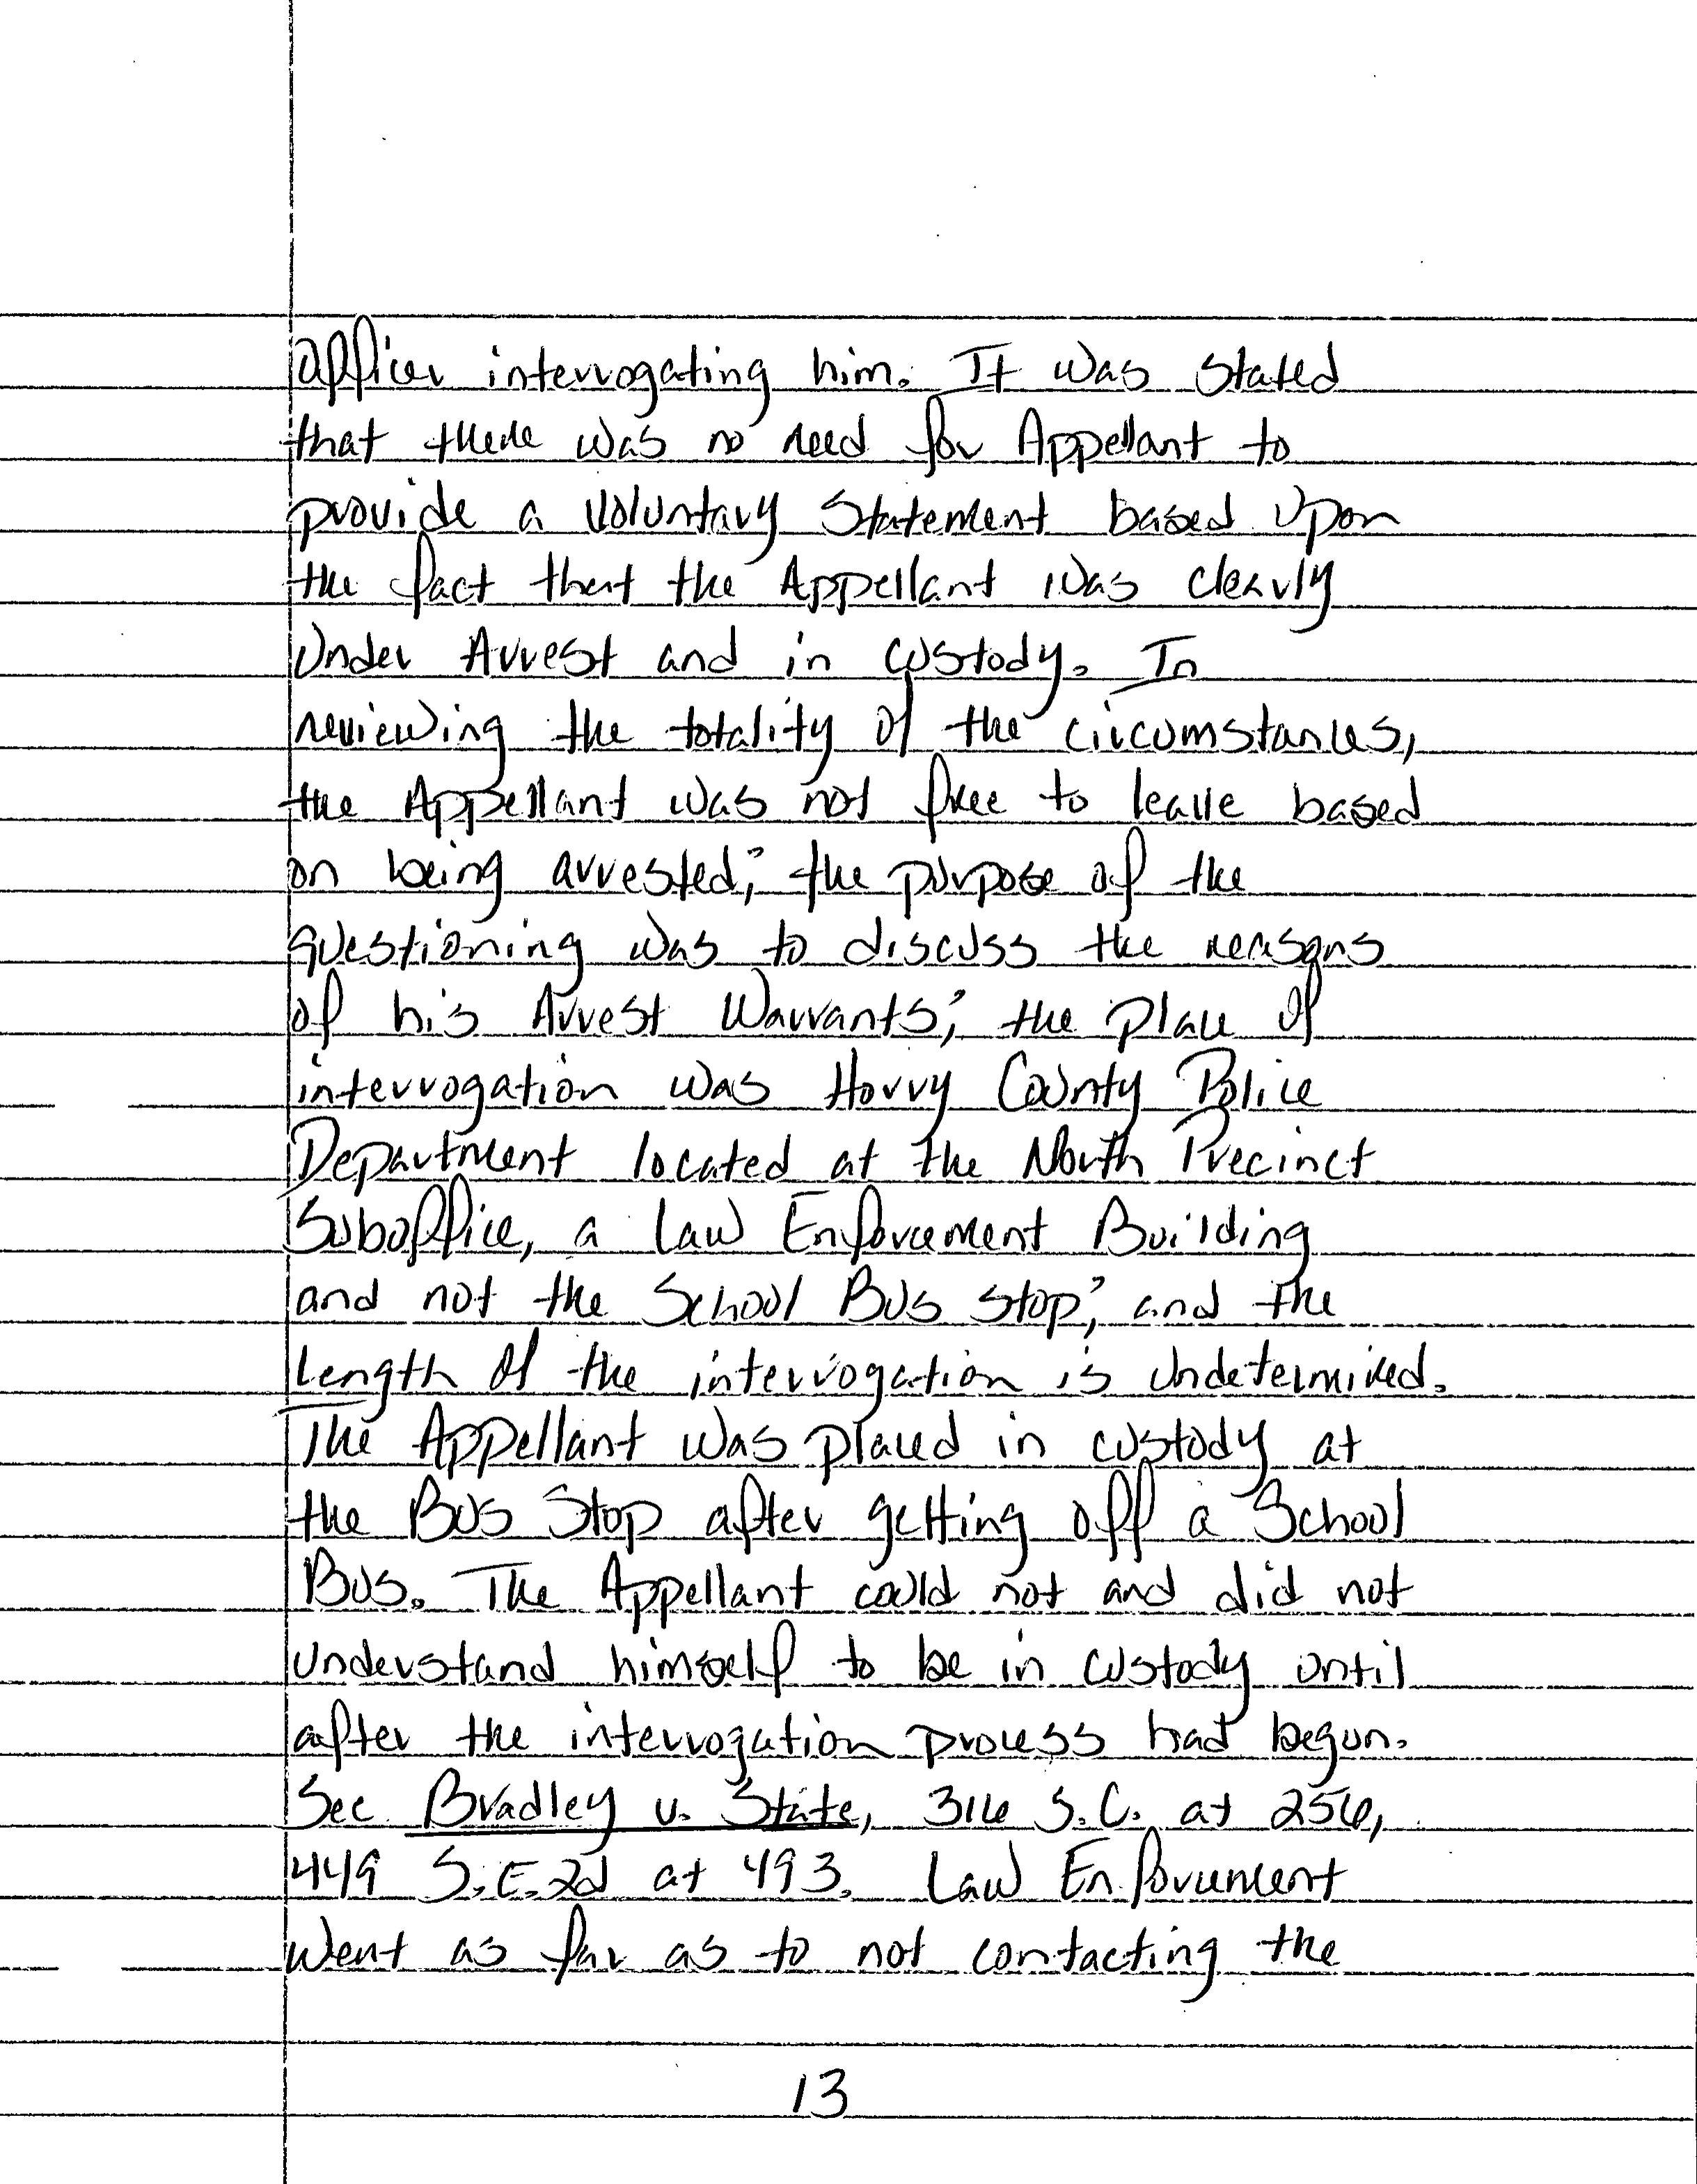 officer interrogating him. It was stated
that there was no need for Appellant to
provide a voluntary Statement based upon
the fact that the Appellant was clearly
Under Arrest and in custody. In
reviewing the totality of the circumstances,
the Appellant was not free to leave based
on being arrested; the purpose of the
questioning was to discuss the reasons
of his Arrest Warrants; the place of
interrogation was Horry County Police
Department located at the North Precinct
Suboffice, a Law Enforcement Building
and not the School Bus Stop; and the
Length of the interrogation is undetermined.
The Appellant was placed in custody at
the Bus Stop after getting off a School
Bus. The Appellant could not and did not
understand himself to be in custody until
after the interrogation process had begun.
See Bradley v. State, 316 S.C. at 256,
449 S.E.2d at 493. Law Enforcement
Went as far as to not contacting the
13